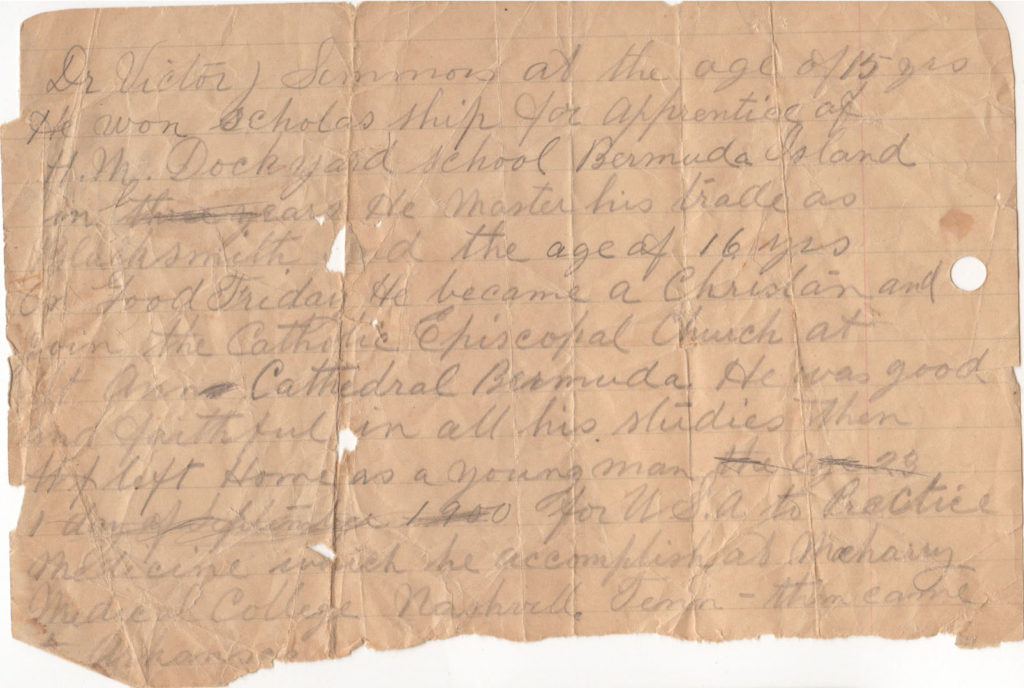 Dr Victor) Simmons at the age of 15 yrs
He won scholas ship for apprentice at
H.M. Dockyard school Bermuda Island
in three years He Master his trade as
Blacksmith and the age of 16 yrs
On Good Friday He became a Christian and
Join the Catholic Episcopal Church at
St Ann Cathedral Bermuda He was good
and faithful in all his studies then
He left Home as a young man the age 23
1 day of September 1900 for U.S.A to Practice
Medicine which he accomplish at Meharry
Medical College Nashville Tenn - then came
Arkansas